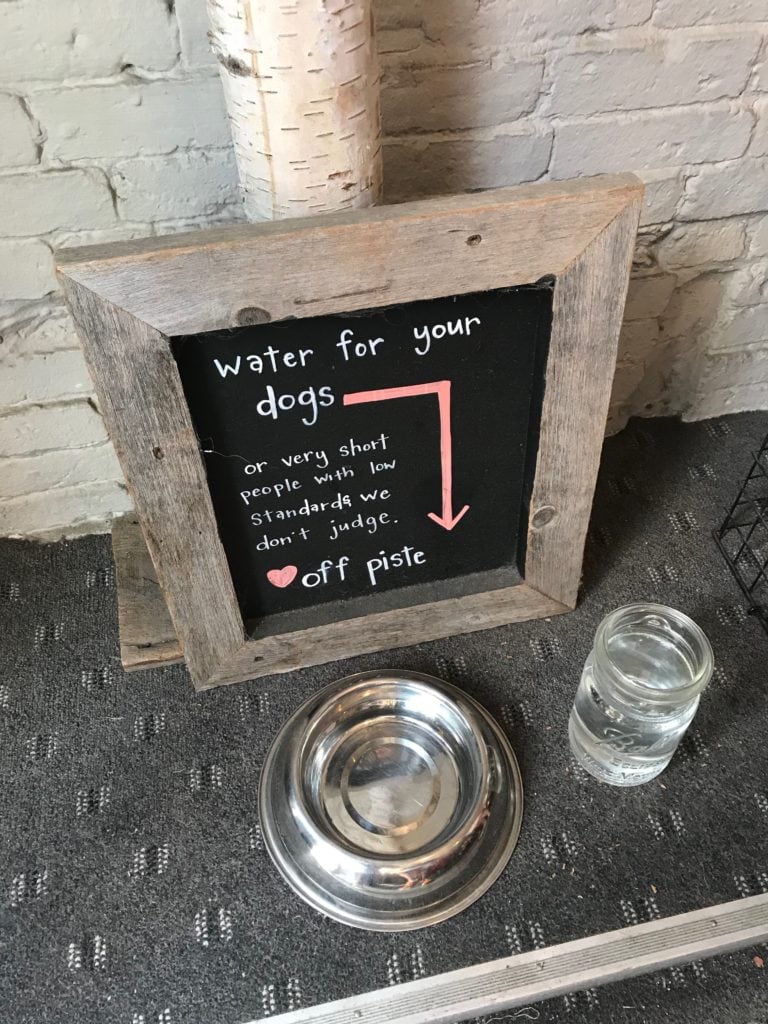 water for your
dogs
or very short
people with low
standards we
don't judge.
off piste
Ball